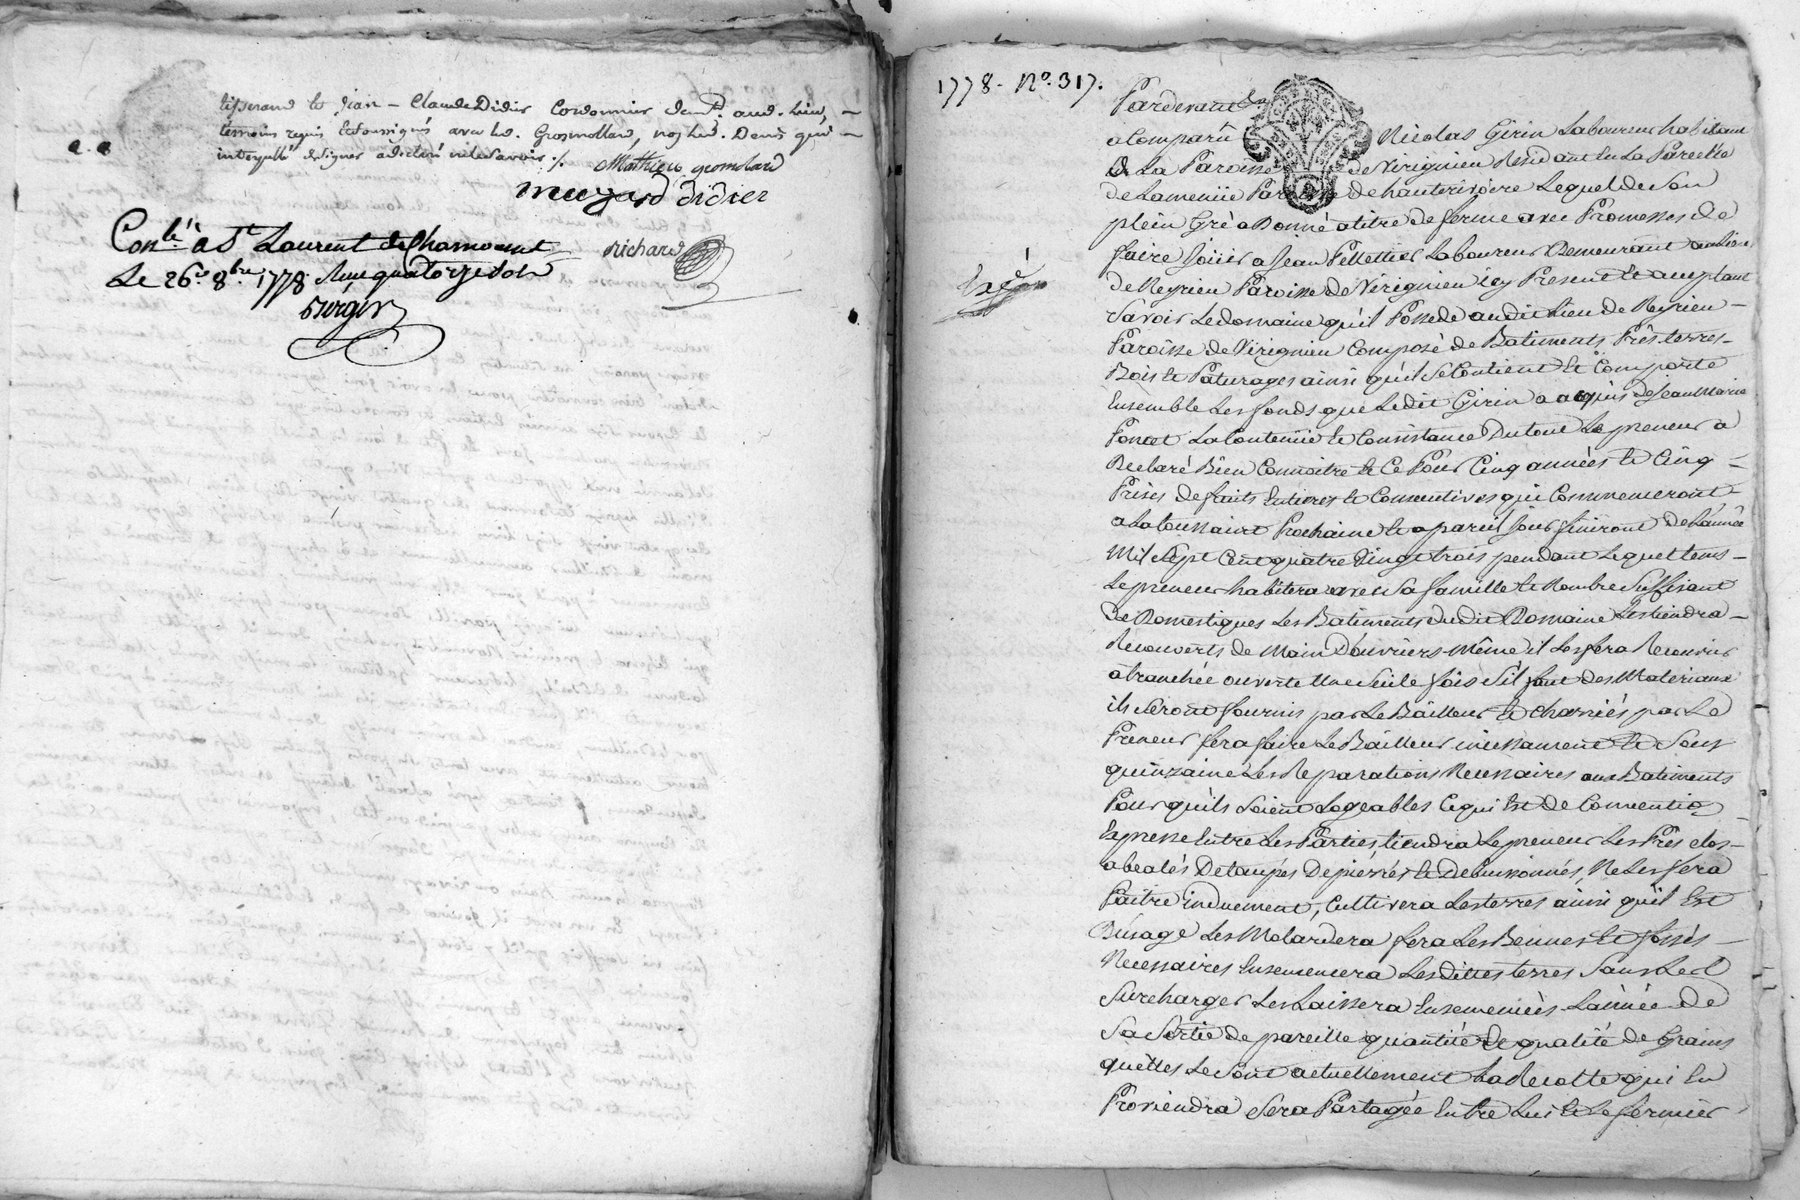 tisserand et Jean - Claude Didier Cordonnier dem.ts aud. lieu, -
temoins requis et soussignés avec led. Grosmollard, non led. Denis qui -
interpellé de signer a declaré ne le savoir ./.
Mathieu gromolard
muzard didier
richard
Con.lé à S.t Laurent de Chamousset
Le 26.e 8.bre 1778 Reçu quatorze sols
1778. N.o 317.
Pardevant
a Comparû Nicolas Girin Laboureur habitant
de La Paroisse de Virignieu Résidant en La Parcelle
de Lameniie Paroisse de hauterivoire Lequel de Son
plein Gré a Donné a titre de ferme avec Promesses de
faire Joüir a Jean Pellettier Laboureur Demeurant au lieu
de Neyrieu Paroisse de Virignieu icy Present et acceptant
Expéd
Savoir Le domaine qu'il Possede au dit Lieu de Neyrieu -
Paroisse de Virignieu Composé de Batiments Prés terres -
Bois et Paturages ainsi qu'il Se Contient et Comporte
Ensemble Les fonds que Le dit Girin a acquis de Jean Marie
Poncet La Contenüe et Consistance Du tout Le preneur a
Declaré Bien Connoitre et Ce Pour Cinq années et Cinq -
Prises de fruits Entieres et Consecutives qui Commenceront -
a La toussaint Prochaine et a pareil Jour finiront de L'année
Mil Sept Cent quatre Vingt trois pendant Lequel tems -
Le preneur habitera avec Sa famille et Nombre Suffisant
de Domestiques Les Batiments du dit Domaine Les tiendra -
Recouverts de Main D'ouvriers Même il Les fera Recouvrir
a tranchée ouverte Une Seule fois S'il faut des Materiaux
ils Seront fournis par Le Bailleur et charriés par Le
Preneur fera faire Le Bailleur incessament et Sous
quinzaine Les Reparations Necessaires aux Batiments
Pour qu'ils Soient Logeables Ce qui Est de Convention
Expresse Entre Les Parties, tiendra Le preneur Les Prés clos -
abealés Detaupés Depierrés et Debuissonnés, Ne Les fera
Paitre induement, Cultivera Les terres ainsi qu'il Est
D'usage Les Molardera fera Les Bennes et fossés -
Necessaires Ensemencera Les dittes terres Sans Les
Surcharger Les Laissera Ensemencés L'année de
Sa Sortie de pareille quantité et qualité de Grains
qu'elles Le Sont actuellement La Recolte qui En
Proviendra Sera Partagée Entre Lui et Le fermier